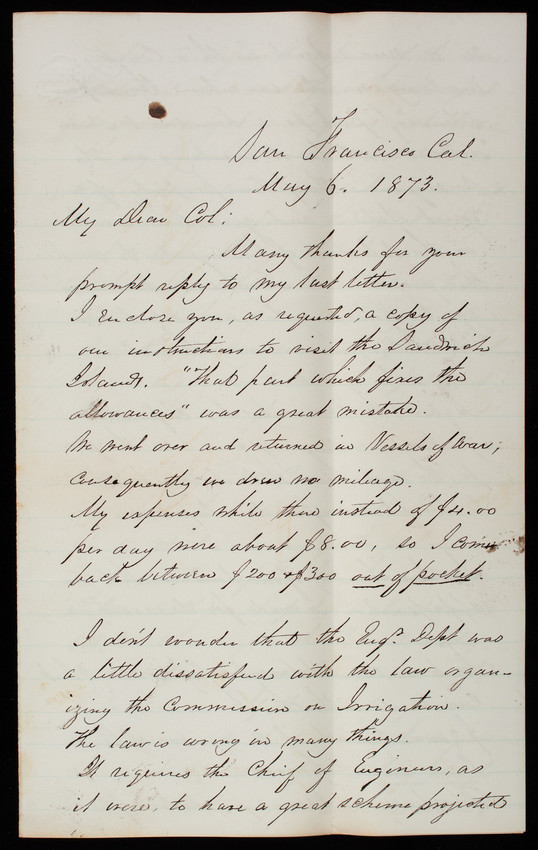 San Francisco Cal.
May 6. 1873.
My Dear Col:
Many thanks for your
prompt reply to my last letter.
I Enclose you, as requested, a copy of
our instructions to visit the Sandwich
Islands. "That part which fixes the
allowances" was a great mistake.
We went over and returned in Vessels of War;
Consequently we drew no mileage.
My expenses while there instead of $4.00
per day were about $8.00, so I came
back between $200 & $300 out of pocket.
I don't wonder that the Engr. Dept was
a little dissatisfied with the law organ-
izing the Commission on Irrigation.
The law is wrong in many things.
It requires the Chief of Engineers, as
it were, to have a great scheme projected